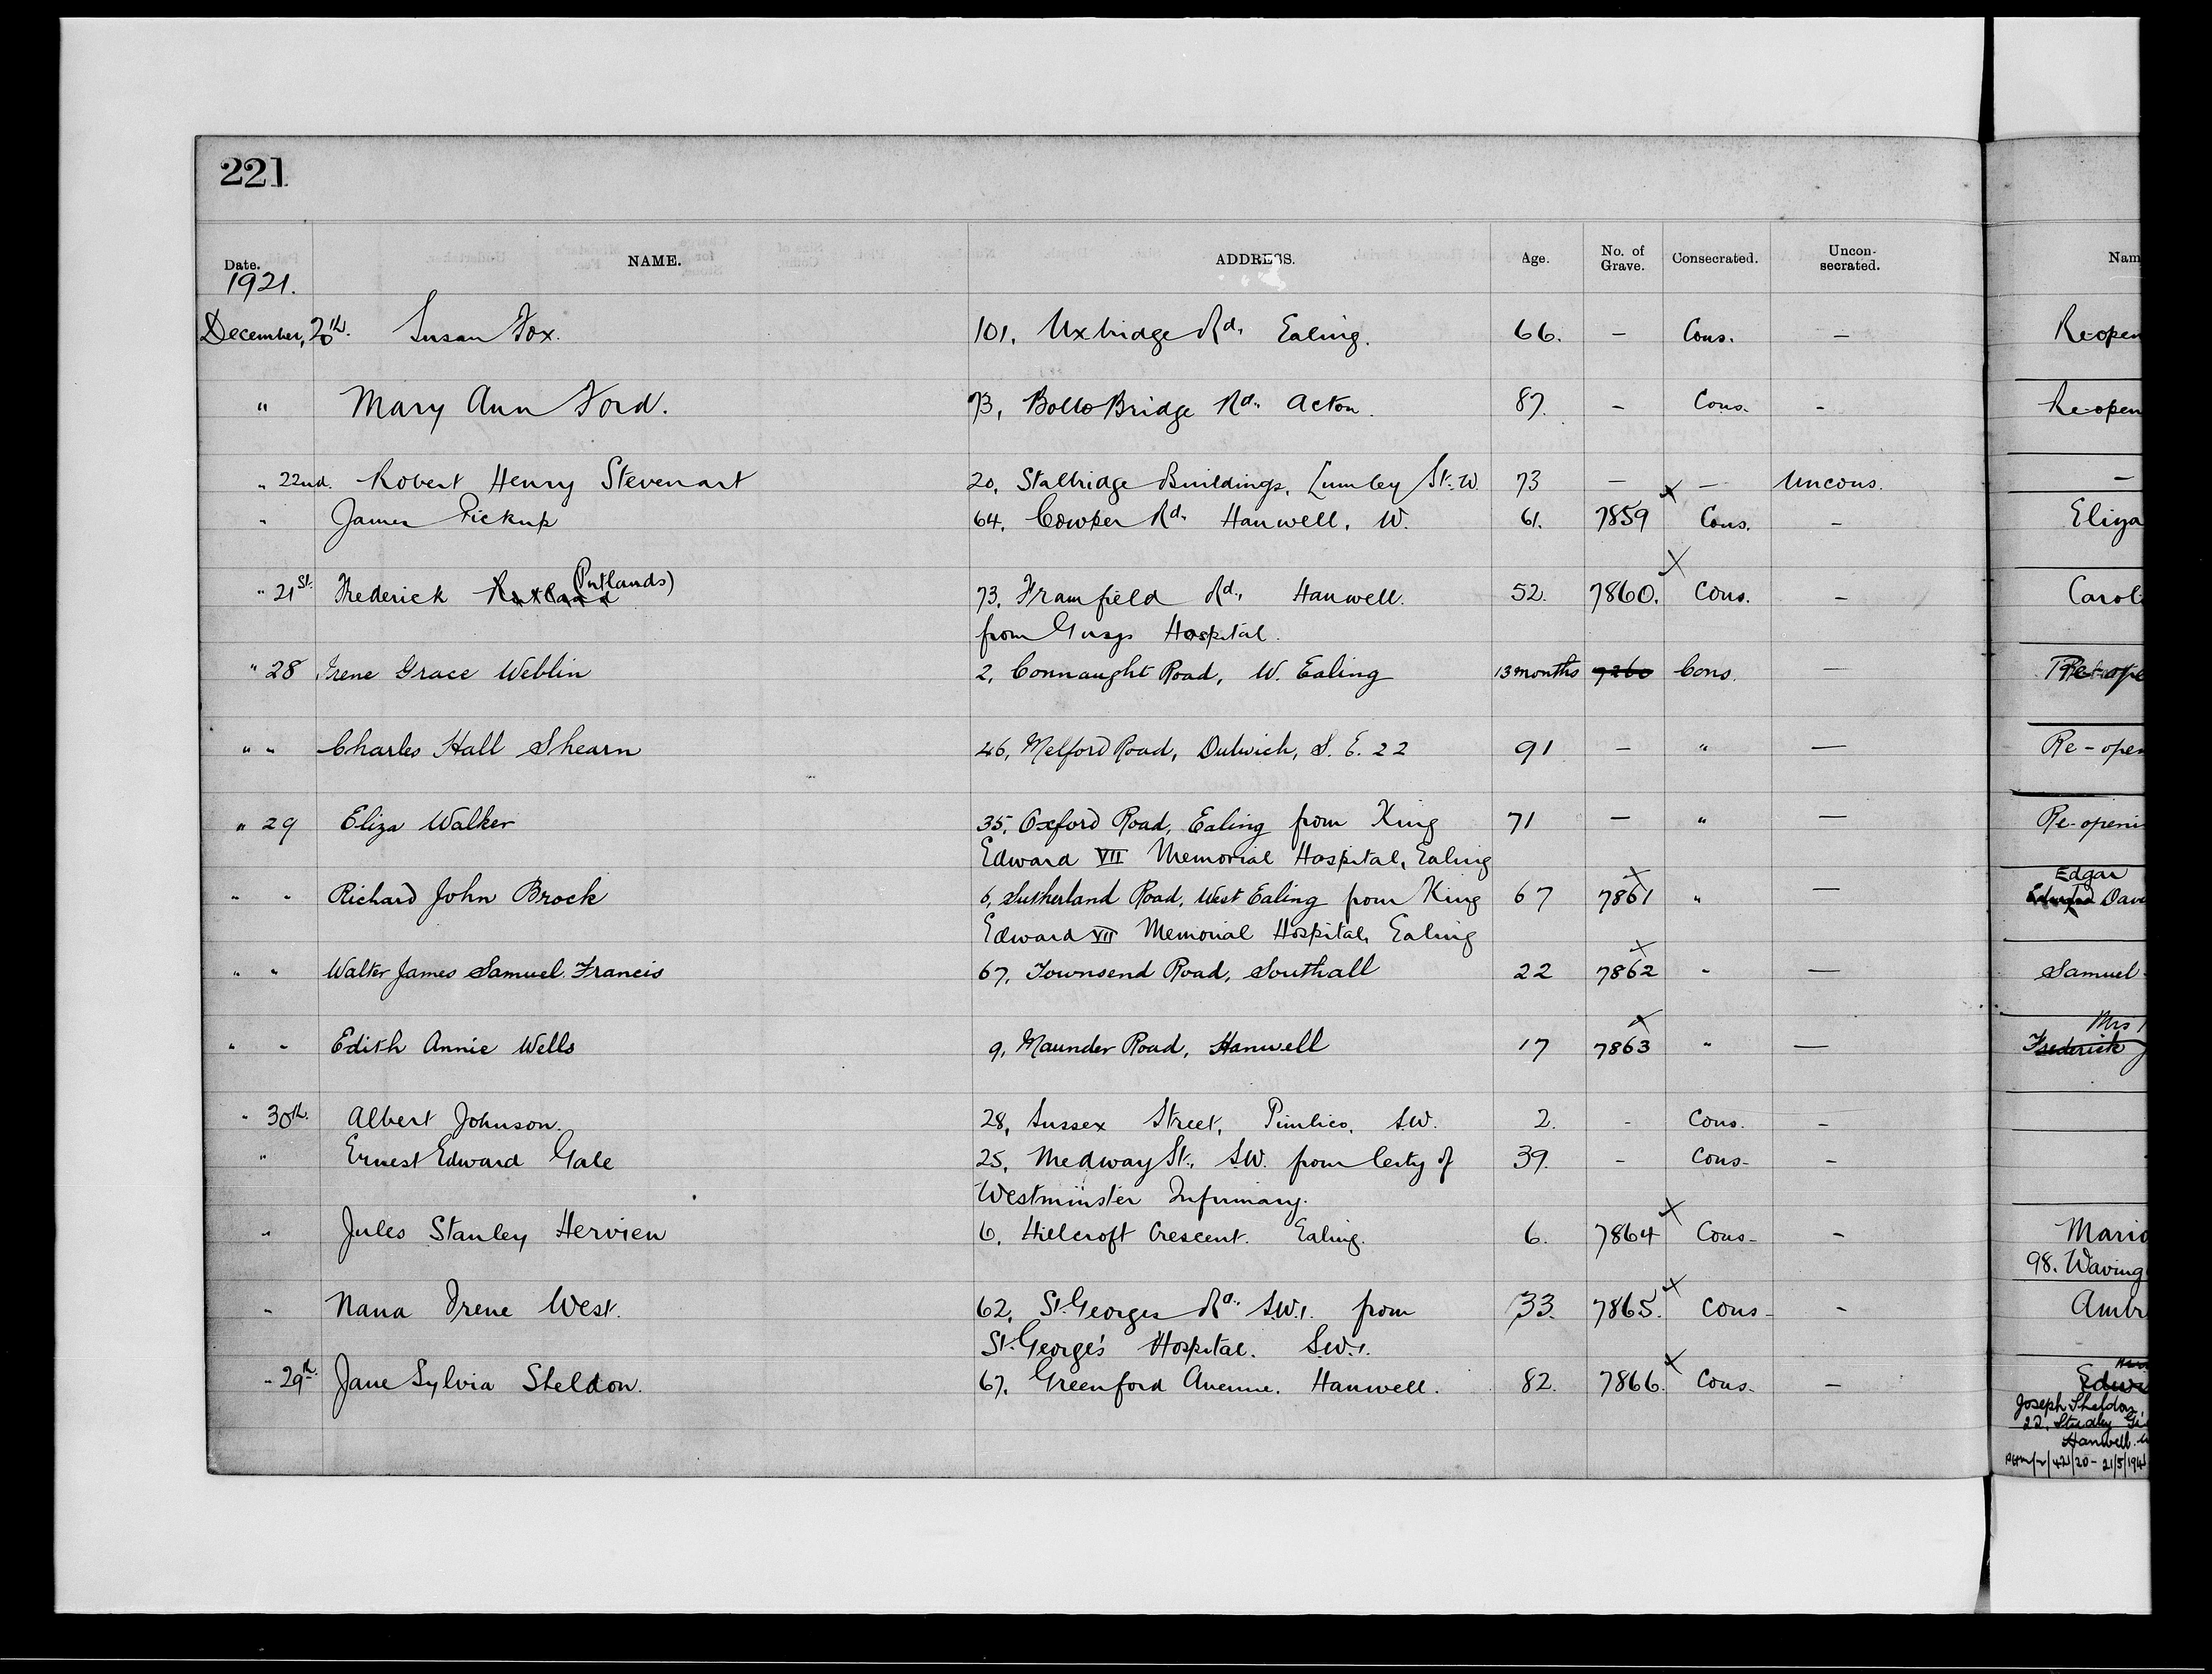 221
Date. NAME. ADDRESS. Age. No. of Grave. Consecrated. Uncon-secrated. Nam
1921.
December, 20th. Susan Fox. 101, Uxbridge Rd. Ealing. 66. – Cons. – Re-open
" Mary Ann Ford. 73, Bollo Bridge Rd. Acton. 87. – Cons. – Re-open
" 22nd. Robert Henry Stevenart 20, Stalbridge Buildings, Lumley St. W. 73 – – Uncons. –
" James Pickup 64, Cowper Rd. Hanwell, W. 61. 7859 x Cons. – Eliza
" 21st. Frederick Rutland (Putlands) 73, Framfield Rd., Hanwell. 52. 7860. x Cons. – Carol
from Guys Hospital.
" 28 Irene Grace Weblin 2, Connaught Road, W. Ealing 13 months 7260 Cons. – Re-ope
" " Charles Hall Shearn 46, Melford Road, Dulwich, S. E. 22 91 – " – Re-open
" 29 Eliza Walker 35, Oxford Road, Ealing from King 71 – " – Re-openi
Edward VII Memorial Hospital, Ealing
Edgar
" " Richard John Brock 6, Sutherland Road, West Ealing from King 67 7861 x " – Dav
Edward VII Memorial Hospital, Ealing
" " Walter James Samuel Francis 67, Townsend Road, Southall 22 7862 x " – Samuel
Mrs
" " Edith Annie Wells 9, Maunder Road, Hanwell 17 7863 x " – Frederick
" 30th. Albert Johnson. 28, Sussex Street, Pimlico, S.W. 2. - Cons. –
" Ernest Edward Gale 25, Medway St., S.W. from City of 39. - Cons- –
Westminster Infirmary.
" Jules Stanley Hervieu 6, Hillcroft Crescent. Ealing. 6. 7864 x Cons- – Mari
98. Waving
" Nana Irene West. 62, St. Georges Rd. S.W.1. from 33. 7865. x Cons- – Amb
St. George's Hospital. S.W.1.
" 29th. Jane Sylvia Sheldon. 67, Greenford Avenue. Hanwell. 82. 7866. x Cons- – Edw
Joseph Sheldon,
22, Studley
Hanwell.
42/20 - 21/5/194